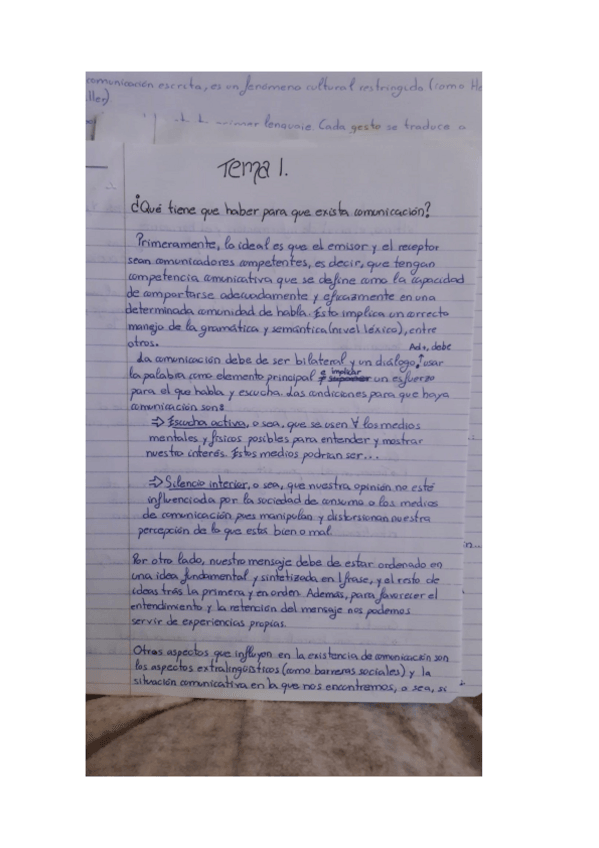 comunicación escrita, es un fenómeno cultural restringido (como He
ller)
primer lenguaje. Cada gesto se traduce a
Tema 1.
¿Qué tiene que haber para que exista comunicación?
Primeramente, lo ideal es que el emisor y el receptor
sean comunicadores competentes, es decir, que tengan
competencia comunicativa que se define como la capacidad
de comportarse adecuadamente y eficazmente en una
determinada comunidad de habla. Esto implica un correcto
manejo de la gramática y semántica (nivel léxico), entre
otros.
Ad+, debe
La comunicación debe de ser bilateral y un diálogo, usar
la palabra como elemento principal e implicar un esfuerzo
para el que habla y escucha. Las condiciones para que haya
comunicación son:
⇒ Escucha activa, o sea, que se usen ∀ los medios
mentales y físicos posibles para entender y mostrar
nuestro interés. Estos medios podrían ser...
⇒ Silencio interior, o sea, que nuestra opinión no esté
influenciada por la sociedad de consumo o los medios
de comunicación pues manipulan y distorsionan nuestra
percepción de lo que está bien o mal.
in...
Por otro lado, nuestro mensaje debe de estar ordenado en
una idea fundamental y sintetizada en 1 frase, y el resto de
ideas trás la primera y en orden. Además, para favorecer el
entendimiento y la retención del mensaje nos podemos
servir de experiencias propias.
Otros aspectos que influyen en la existencia de comunicación son
los aspectos extralingüísticos (como barreras sociales) y la
situación comunicativa en la que nos encontremos, o sea, si